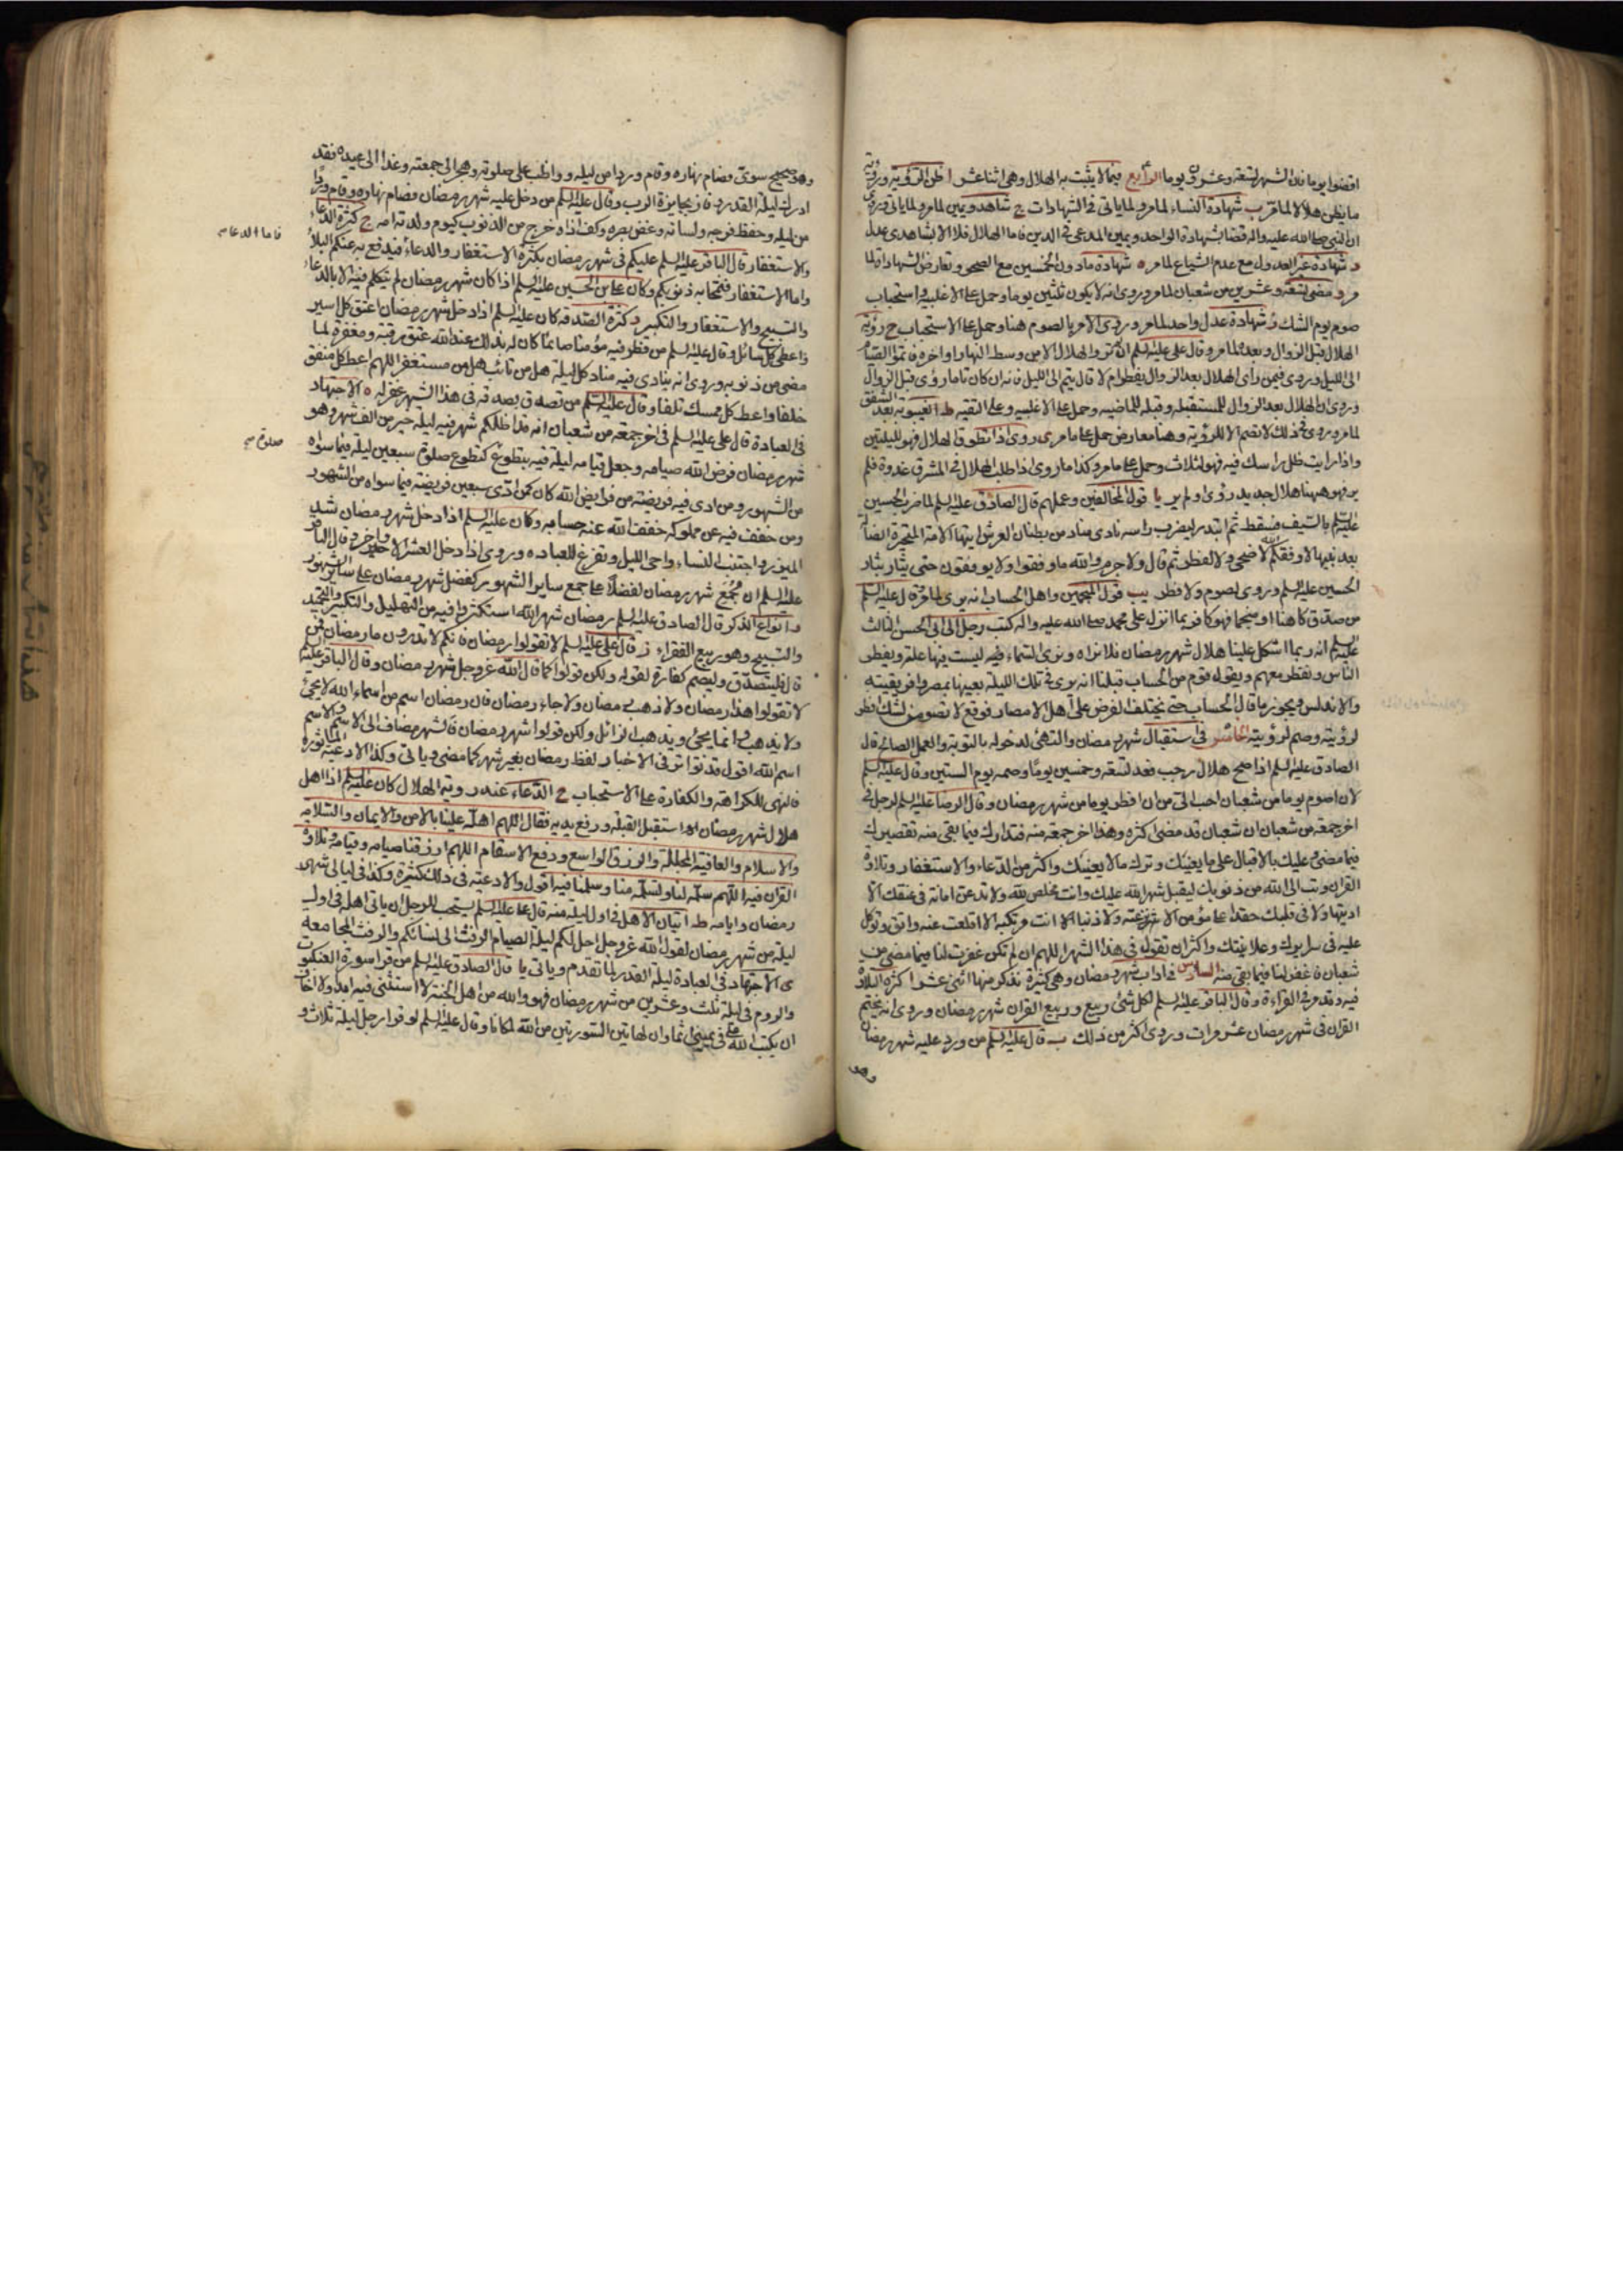 اقضوا يوما فان الشهر تسعة وعشرون يوما الرابع فيما لا يثبت به الهلال وهي اثنا عشر ا ظن الرؤية ورؤية
ما يظن هلالا لما مر ب شهادة النساء لما مر ولما ياتي في الشهادات ج شاهد ويمين لما مر ولما ياتي وروي
ان النبي صلى الله عليه واله قضا بشهادة الواحد ويمين المدعي في الدين فاما الهلال فلا الا بشاهدي عدل
د شهادة غير العدول مع عدم الشياع لما مر ه شهادة ما دون الخمسين مع الصحو وتعارض الشهادة لما
مر و مضى تسعة وعشرين من شعبان لما مر وروي انه لا يكون ثلثين يوما وحمل على الاغلبية واستحباب
صوم يوم الشك ز شهادة عدل واحد لما مر وروي الامر بالصوم هنا وحمل على الاستحباب ح رؤية
الهلال قبل الزوال وبعده لما مر وقال علي عليه السلم اذا لم تروا الهلال الا من وسط النهار او اخره فاتموا الصيام
الى الليل وروي فيمن راى الهلال بعد الزوال يفطر ام لا قال يتم الى الليل فانه ان كان تاما رؤى قبل الزوال
وروي ان الهلال بعد الزوال للمستقبلة وقبله للماضية وحمل على الاغلبية وعلى التقية ط الغيبوبة بعد الشفق
لما مر وروي في ذلك لا تصم الا للرؤية وهنا معارض حمل على ما مر ي روي اذا تطوق الهلال فهو لليلتين
واذا رايت ظل راسك فيه فهو لثلاث وحمل على ما مر وكذا ما روي اذا طلب الهلال في المشرق غدوة فلم
ير فهو ههنا هلال جديد رؤى او لم ير يا قول المخالفين وعملهم قال الصادق عليه السلم لما ضرب الحسين
عليه السلم بالسيف فسقط ثم ابتدر ليضرب راسه نادى مناد من بطنان العرش ايتها الامة المتحيرة الضالة
بعد نبيها لا وفقكم الله لاضحى ولا لفطر ثم قال ولا جرم والله ما وفقوا ولا يوفقون حتى يثار بثار
الحسين عليه السلم وروي لصوم ولا فطر يب قول المنجمين واهل الحساب انه يرى لما مر وقال عليه السلم
من صدق كاهنا او منجما فهو كافر بما انزل على محمد صلى الله عليه واله وكتب رجل الى ابي الحسن الثالث
عليه السلم انه ربما اشكل علينا هلال شهر رمضان فلا نراه ونرى السماء فيه ليست فيها علة ويفطر
الناس ونفطر معهم ويقول قوم من الحساب قبلنا انه يرى في تلك الليلة بعينها بمصر وافريقيه
والاندلس ويجوز ما قال الحساب حتى يختلف الفرض على اهل الامصار فوقع لا تصومن لشك افطر
لرؤيته وصم لرؤيته الخامس في استقبال شهر رمضان والتهئ لدخوله بالتوبة والعمل الصالح قال
الصادق عليه السلم اذا صح هلال رجب فعد تسعة وخمسين يوما وصمه يوم الستين وقال عليه السلم
لان اصوم يوما من شعبان احب الي من ان افطر يوما من شهر رمضان وقال الرضا عليه السلم لرجل في
اخر جمعة من شعبان ان شعبان قد مضى اكثره وهذا اخر جمعة منه فتدارك فيما بقى منه تقصيرك
فيما مضى وعليك بالاقبال على ما يعنيك وترك ما لا يعنيك واكثر من الدعاء والاستغفار وتلاوة
القران وتب الى الله من ذنوبك ليقبل شهر الله عليك وانت مخلص لله ولا تدعن امانة في عنقك الا
اديتها ولا في قلبك حقدا على مؤمن الا نزعته ولا ذنبا انت مرتكبه الا اقلعت عنه واتق وتوكل
عليه في سرايرك وعلانيتك واكثر ان تقول في هذا الشهر اللهم ان لم تكن غفرت لنا فيما مضى من
شعبان فاغفر لنا فيما بقى منه السادس في اداب شهر رمضان وهي كثيرة نذكر منها اثني عشر ا كثرة التلاوة
فيه وقد مر في القراءة وقال الباقر عليه السلم لكل شئ ربيع وربيع القران شهر رمضان وروي انه يختم
القران في شهر رمضان عشر مرات وروي اكثر من ذلك ب قال عليه السلم من ورد عليه شهر رمضان
وهو
وهو صحيح سوي فصام نهاره وقام وردا من ليله وواظب على صلوته وهجر الى جمعته وغدا الى عيده فقد
ادرك ليلة القدر وفاز بجايزة الرب وقال عليه السلم من دخل عليه شهر رمضان فصام نهاره وقام وردا
من ليله وحفظ فرجه ولسانه وغض بصره وكف اذاه خرج من الذنوب كيوم ولدته امه ج كثرة الدعاء
والاستغفار قال الباقر عليه السلم عليكم في شهر رمضان بكثرة الاستغفار والدعاء فيدفع به عنكم البلاء
فاما الدعاء
واما الاستغفار فتمحا به ذنوبكم وكان علي بن الحسين عليه السلم اذا كان شهر رمضان لم يتكلم فيه الا بالدعاء
والتسبيح والاستغفار والتكبير د كثرة الصدقة كان عليه السلم اذا دخل شهر رمضان اعتق كل اسير
واعطى كل سائل وقال عليه السلم من فطر فيه مؤمنا صائما كان له بذلك عند الله عتق رقبة ومغفرة لما
مضى من ذنوبه وروي انه ينادي فيه مناد كل ليلة هل من تائب هل من مستغفر اللهم اعط كل منفق
خلفا واعط كل ممسك تلفا وقال عليه السلم من تصدق بصدقة في هذا الشهر غفر له ه الاجتهاد
في العبادة قال علي عليه السلم في اخر جمعة من شعبان انه قد اظلكم شهر فيه ليلة خير من الف شهر وهو
شهر رمضان فرض الله صيامه وجعل قيام ليلة فيه بتطوع كتطوع صلوة سبعين ليلة فيما سواه
صلوة
من الشهور ومن ادى فيه فريضة من فرايض الله كان كمن ادى سبعين فريضة فيما سواه من الشهور
ومن خفف فيه عن مملوكه خفف الله عنه حسابه وكان عليه السلم اذا دخل شهر رمضان شد
الميزر واجتنب النساء واحى الليل وتفرغ للعبادة وروي اذا دخل العشر الاواخر و قال الباقر
عليه السلم ان لجمع شهر رمضان لفضلا على جمع ساير الشهور كفضل شهر رمضان على ساير الشهور
و انواع الذكر قال الصادق عليه السلم رمضان شهر الله استكثروا فيه من التهليل والتكبير والتحميد
والتسبيح وهو ربيع الفقراء ز قال علي عليه السلم لا تقولوا رمضان فانكم لا تدرون ما رمضان فمن
قاله فليتصدق وليصم كفارة لقوله ولكن قولوا كما قال الله عز وجل شهر رمضان وقال الباقر عليه السلم
لا تقولوا هذا رمضان ولا ذهب رمضان ولا جاء رمضان فان رمضان اسم من اسماء الله لا يجئ
ولا يذهب وانما يجئ ويذهب الزائل ولكن قولوا شهر رمضان فالشهر مضاف الى الاسم والاسم
اسم الله اقول قد تواتر في الاخبار لفظ رمضان بغير شهر كما مضى وياتي وكذا الادعية الماثورة
فالنهي للكراهة والكفارة على الاستحباب ح الدعاء عند رؤية الهلال كان عليه السلم اذا اهل
هلال شهر رمضان استقبل القبلة ورفع يديه فقال اللهم اهله علينا بالامن والايمان والسلامة
والاسلام والعافية المجللة والرزق الواسع ودفع الاسقام اللهم ارزقنا صيامه وقيامه وتلاوة
القران فيه اللهم سلمه لنا وتسلمه منا وسلمنا فيه اقول والادعية في ذلك كثيرة وكذا في ليالي شهر
رمضان وايامه ط اتيان الاهل في اول ليلة منه قال علي عليه السلم يستحب للرجل ان ياتي اهله في اول
ليلة من شهر رمضان لقول الله عز وجل احل لكم ليلة الصيام الرفث الى نسائكم والرفث المجامعة
ي الاجتهاد في العبادة ليلة القدر لما تقدم وياتي يا قال الصادق عليه السلم من قرا سورة العنكبوت
والروم في ليلة ثلث وعشرين من شهر رمضان فهو والله من اهل الجنة لا استثنى فيه ابدا ولا اخاف
ان يكتب الله علي في يميني اثما وان لهاتين السورتين من الله لمكانا وقال عليه السلم لو قرا رجل ليلة ثلاث و